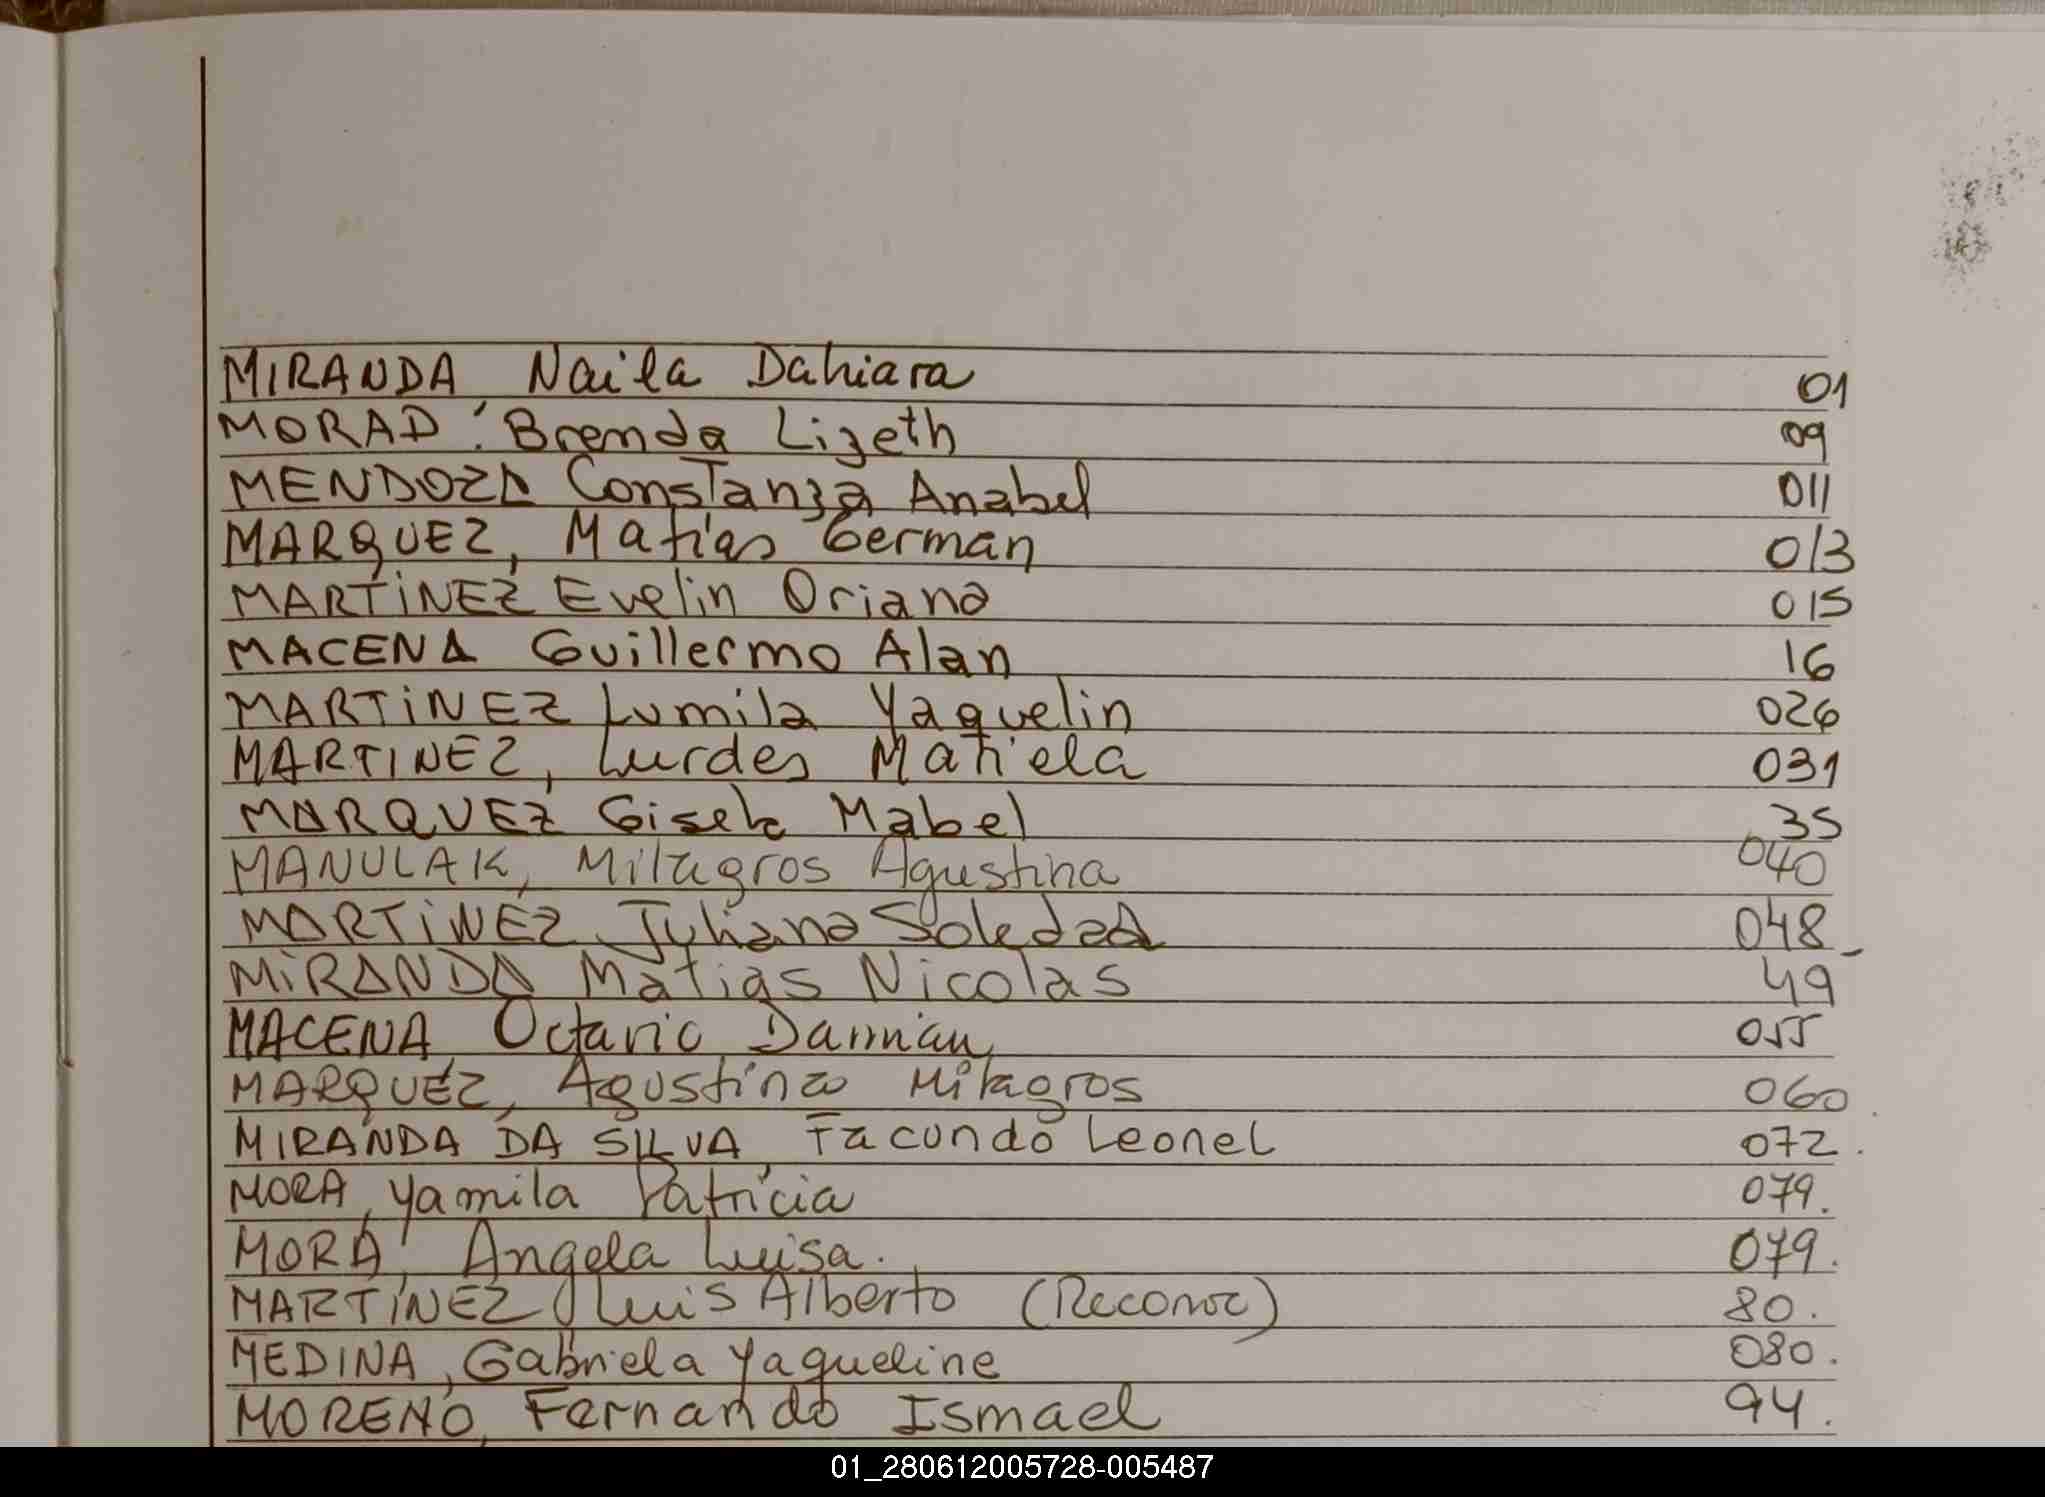 MIRANDA, Naila Dahiara 01
MORAD: Brenda Lizeth 09
MENDOZA Constanza Anabel 011
MARQUEZ, Matías German 013
MARTiNEZ Evelin Oriana 015
MACENA Guillermo Alan 16
MARTiNEZ Lumila Yaquelin 026
MARTINEZ, Lurdes Mariela 031
MARQUEZ Gisela Mabel 35
MANULAK, Milagros Agustina 040
MARTiNEZ Juliana Soledad 048
MiRANDA Matias Nicolas 49
MACENA, Octavio Damian 055
MARQUEZ, Agustina Milagros 060
MIRANDA DA SILVA, Facundo Leonel 072.
MORA, Yamila Patricia 079.
MORA, Angela Luisa. 079.
MARTINEZ, Luis Alberto (Reconoc) 80.
MEDINA, Gabriela Yaqueline 080.
MORENO, Fernando Ismael 94.
01_280612005728-005487